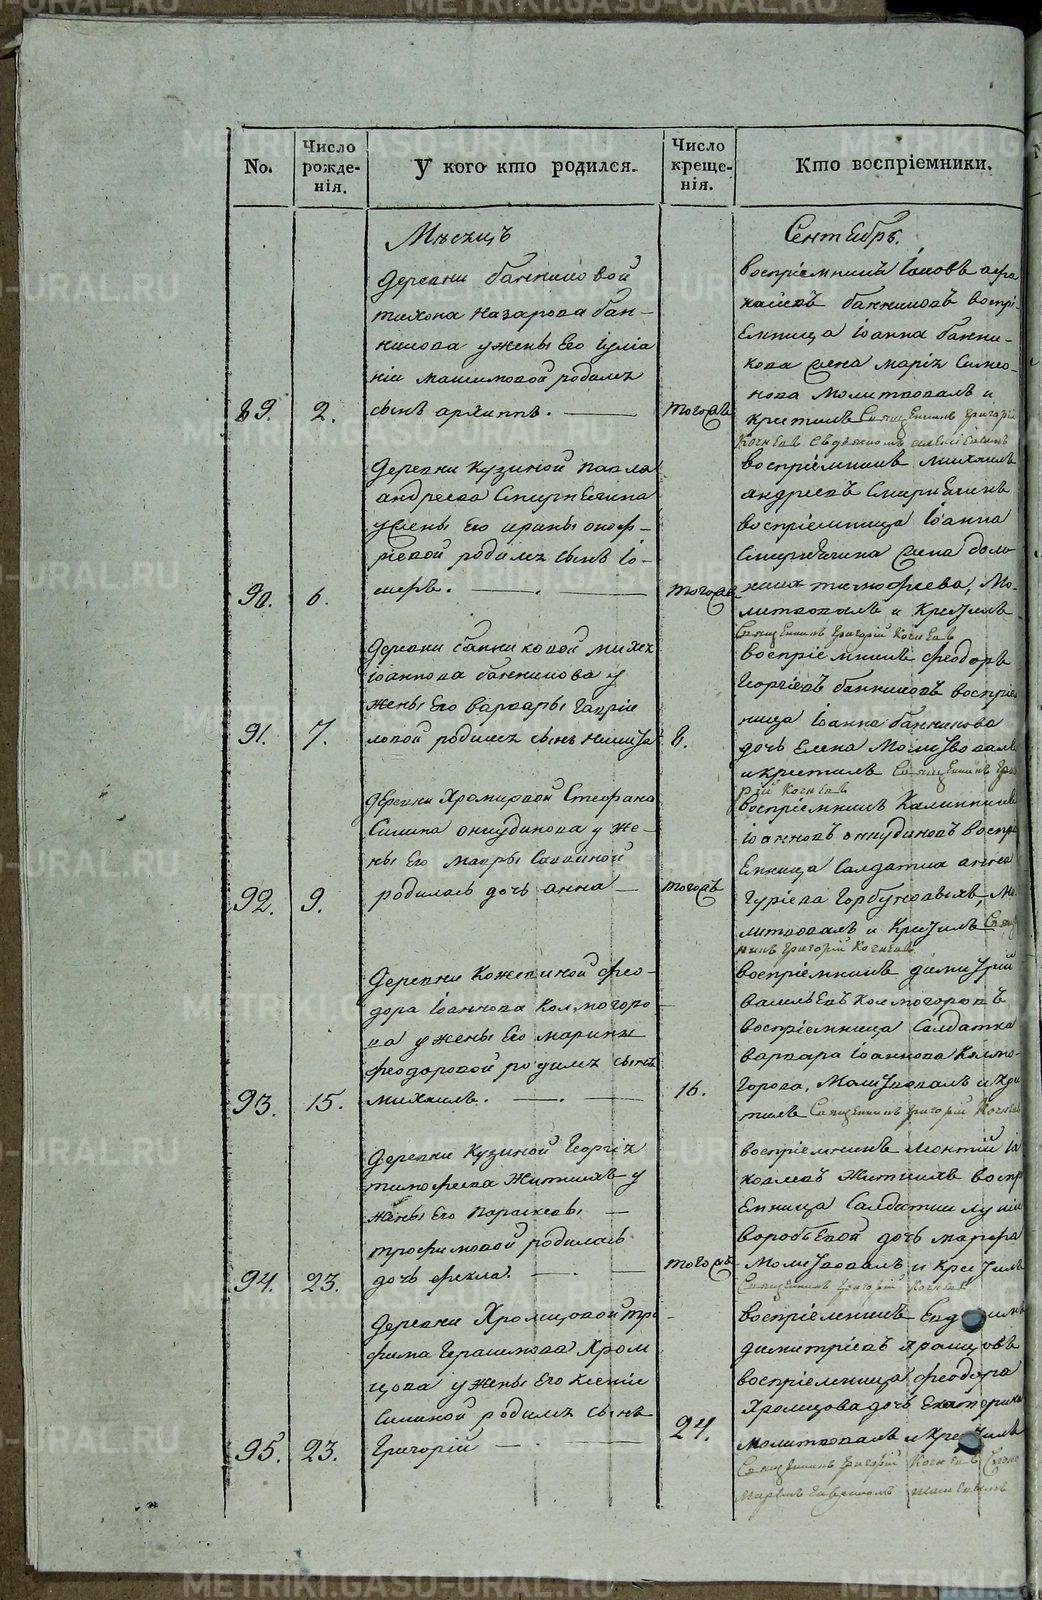 No.
Число рожде-нія.
У кого кто родился.
Число креще-нія.
Кто воспріемники.
Мѣсяцъ
Сентябрь.
деревни банниковой
тихона назарова бан-
никова у жены его іуліа
ніи максимовой родился
89. 2. сынъ архиппъ. тогожъ
воспріемникъ Іаковъ
банниковъ воспрі-
емница іоанна банни-
кова жена марія Симео-
нова молитвовалъ и
крестилъ Священникъ григорій
деревни кузиной павла
андреева Смирнягина
у жены его ирины оноф-
ріевой родился сынъ іо-
90. 6. сифъ. тогожъ
воспріемникъ михаилъ
андреевъ Смирнягинъ
воспріемница іоанна
Смирнягина жена
тимофеева, мо-
литвовалъ и крестилъ
Священникъ григорій
деревни банниковой
іоаннова банникова у
жены его варвары гаврі
91. 7. ловой родился сынъ никита 8.
воспріемникъ феодоръ
георгіевъ банниковъ воспріем
ница іоанна банникова
дочь елена молитвовалъ
и крестилъ Священникъ гри
горій
деревни хромцовой Стефана
Силина онкудинова у же-
ны его мавры Саввиной
92. 9. родилась дочь анна тогожъ
воспріемникъ
іоанновъ онкудиновъ воспрі
емница Салдатка анна
гуріева горбуновыхъ, мо
литвовалъ и крестилъ Свящ
никъ григорій
деревни кожевиной фео-
дора іоаннова колмогоро-
ва у жены его марины
феодоровой родился сынъ
93. 15. михаилъ. 16.
воспріемникъ димитрій
васильевъ колмогоровъ
воспріемница Салдатка
варвара іоаннова колмо-
горова. молитвовалъ и кре
тилъ Священникъ григорій
деревни кузиной георгія
тимофеева житникъ у
жены его параскевы
трофимовой родилась
94. 23. дочь фекла. тогожъ
воспріемникъ леонтій іа
ковлевъ житникъ воспрі
емница Салдатки
воробьевой дочь марфа
молитвовалъ и крестилъ
Священникъ григорій
деревни хромцовой тро
фима герасимова хром
цова у жены его ксеніи
Силиной родился сынъ
95. 23. григорій 24.
воспріемникъ
димитріевъ хромцовъ
воспріемница феодора
хромцова дочь екатерина
молитвовалъ и крестилъ
Священникъ григорій
METRIKI.GASO-URAL.RU